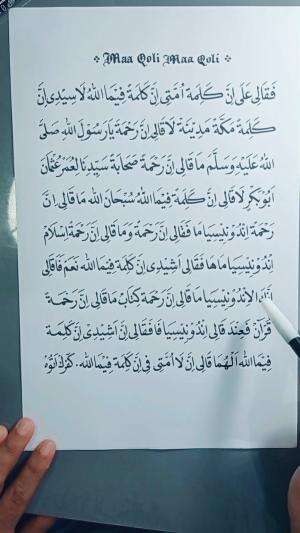 Maa Qoli Maa Qoli
فَقَالِى عَلَى اِنَّ كَلِمَة اُمَتِى اِنَّ كَلِمَةَ فِيْمَا اللهُ لَا سِيْدِى اِنَّ
كَلِمَةُ مَكَّةَ مَدِيْنَةَ لَا قَالِى اِنَّ رَحْمَةَ يَارَسُوْلَ اللهِ صَلَى
اللهُ عَلَيْهِ وَسَلَّم مَا قَالِى اِنَّ رَحْمَةَ صَحَابَةَ سَيِّدِنَا لِعُمَرْ عُثْمَانَ
اَبُوْبَكْرٍ لَا قَالِى اِنَّ كَلِمَةَ فِيْمَا اللهُ سُبْحَانَ الله مَا قَالِى اِنَّ
رَحْمَةَ اِنْدُوْنِيْسِيَا مَا فَقَالِى اِنَّ رَحْمَةَ وَمَا قَالِى اِنَّ رَحْمَةَ اِسْلَامْ
اِنْدُوْنِيْسِيَا مَاهَا فَقَالِى اُشِيْدِى اِنَّ كَلِمَةَ فِيْمَا الله نَعَمْ فَاقَالِى
الْاِنْدُوْنِيْسِيَا مَا قَالِى اِنَّ رَحْمَةَ كِتَابْ مَا قَالِى اِنَّ رَحْمَةَ
قُرْآنْ فَعِنْدَ قَالِى اِنْدُوْنِيْسِيَا فَا فَقَالِى اِنَّ اُشِيْدِىْ اِنَّ كَلِمَةَ
فِيْمَا الله اَلْهُمَا قَالِى اِنَّ لَا اُمَتِى فِى اِنَّ كَلِمَةَ فِيْمَا الله.